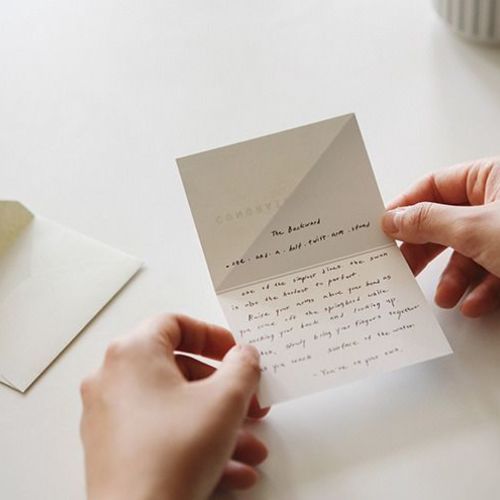 CONGRA
The Backward
one-and-a-half-twist-arm-stand
one of the simplest dives, the swan
is also the hardest to perfect.
Raise your arms above your head as
you come off the springboard while
your back and
slowly bring your fingers together
as you reach surface of the water.
- You're on your own.